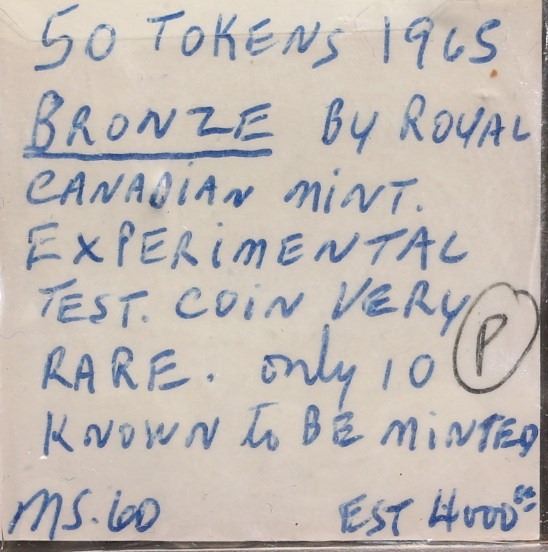 50 TOKENS 1965
BRONZE BY ROYAL
CANADIAN MINT.
EXPERIMENTAL
TEST. COIN VERY
RARE. only 10 P
KNOWN to BE MINTED
MS.60 EST 4000⁰⁰